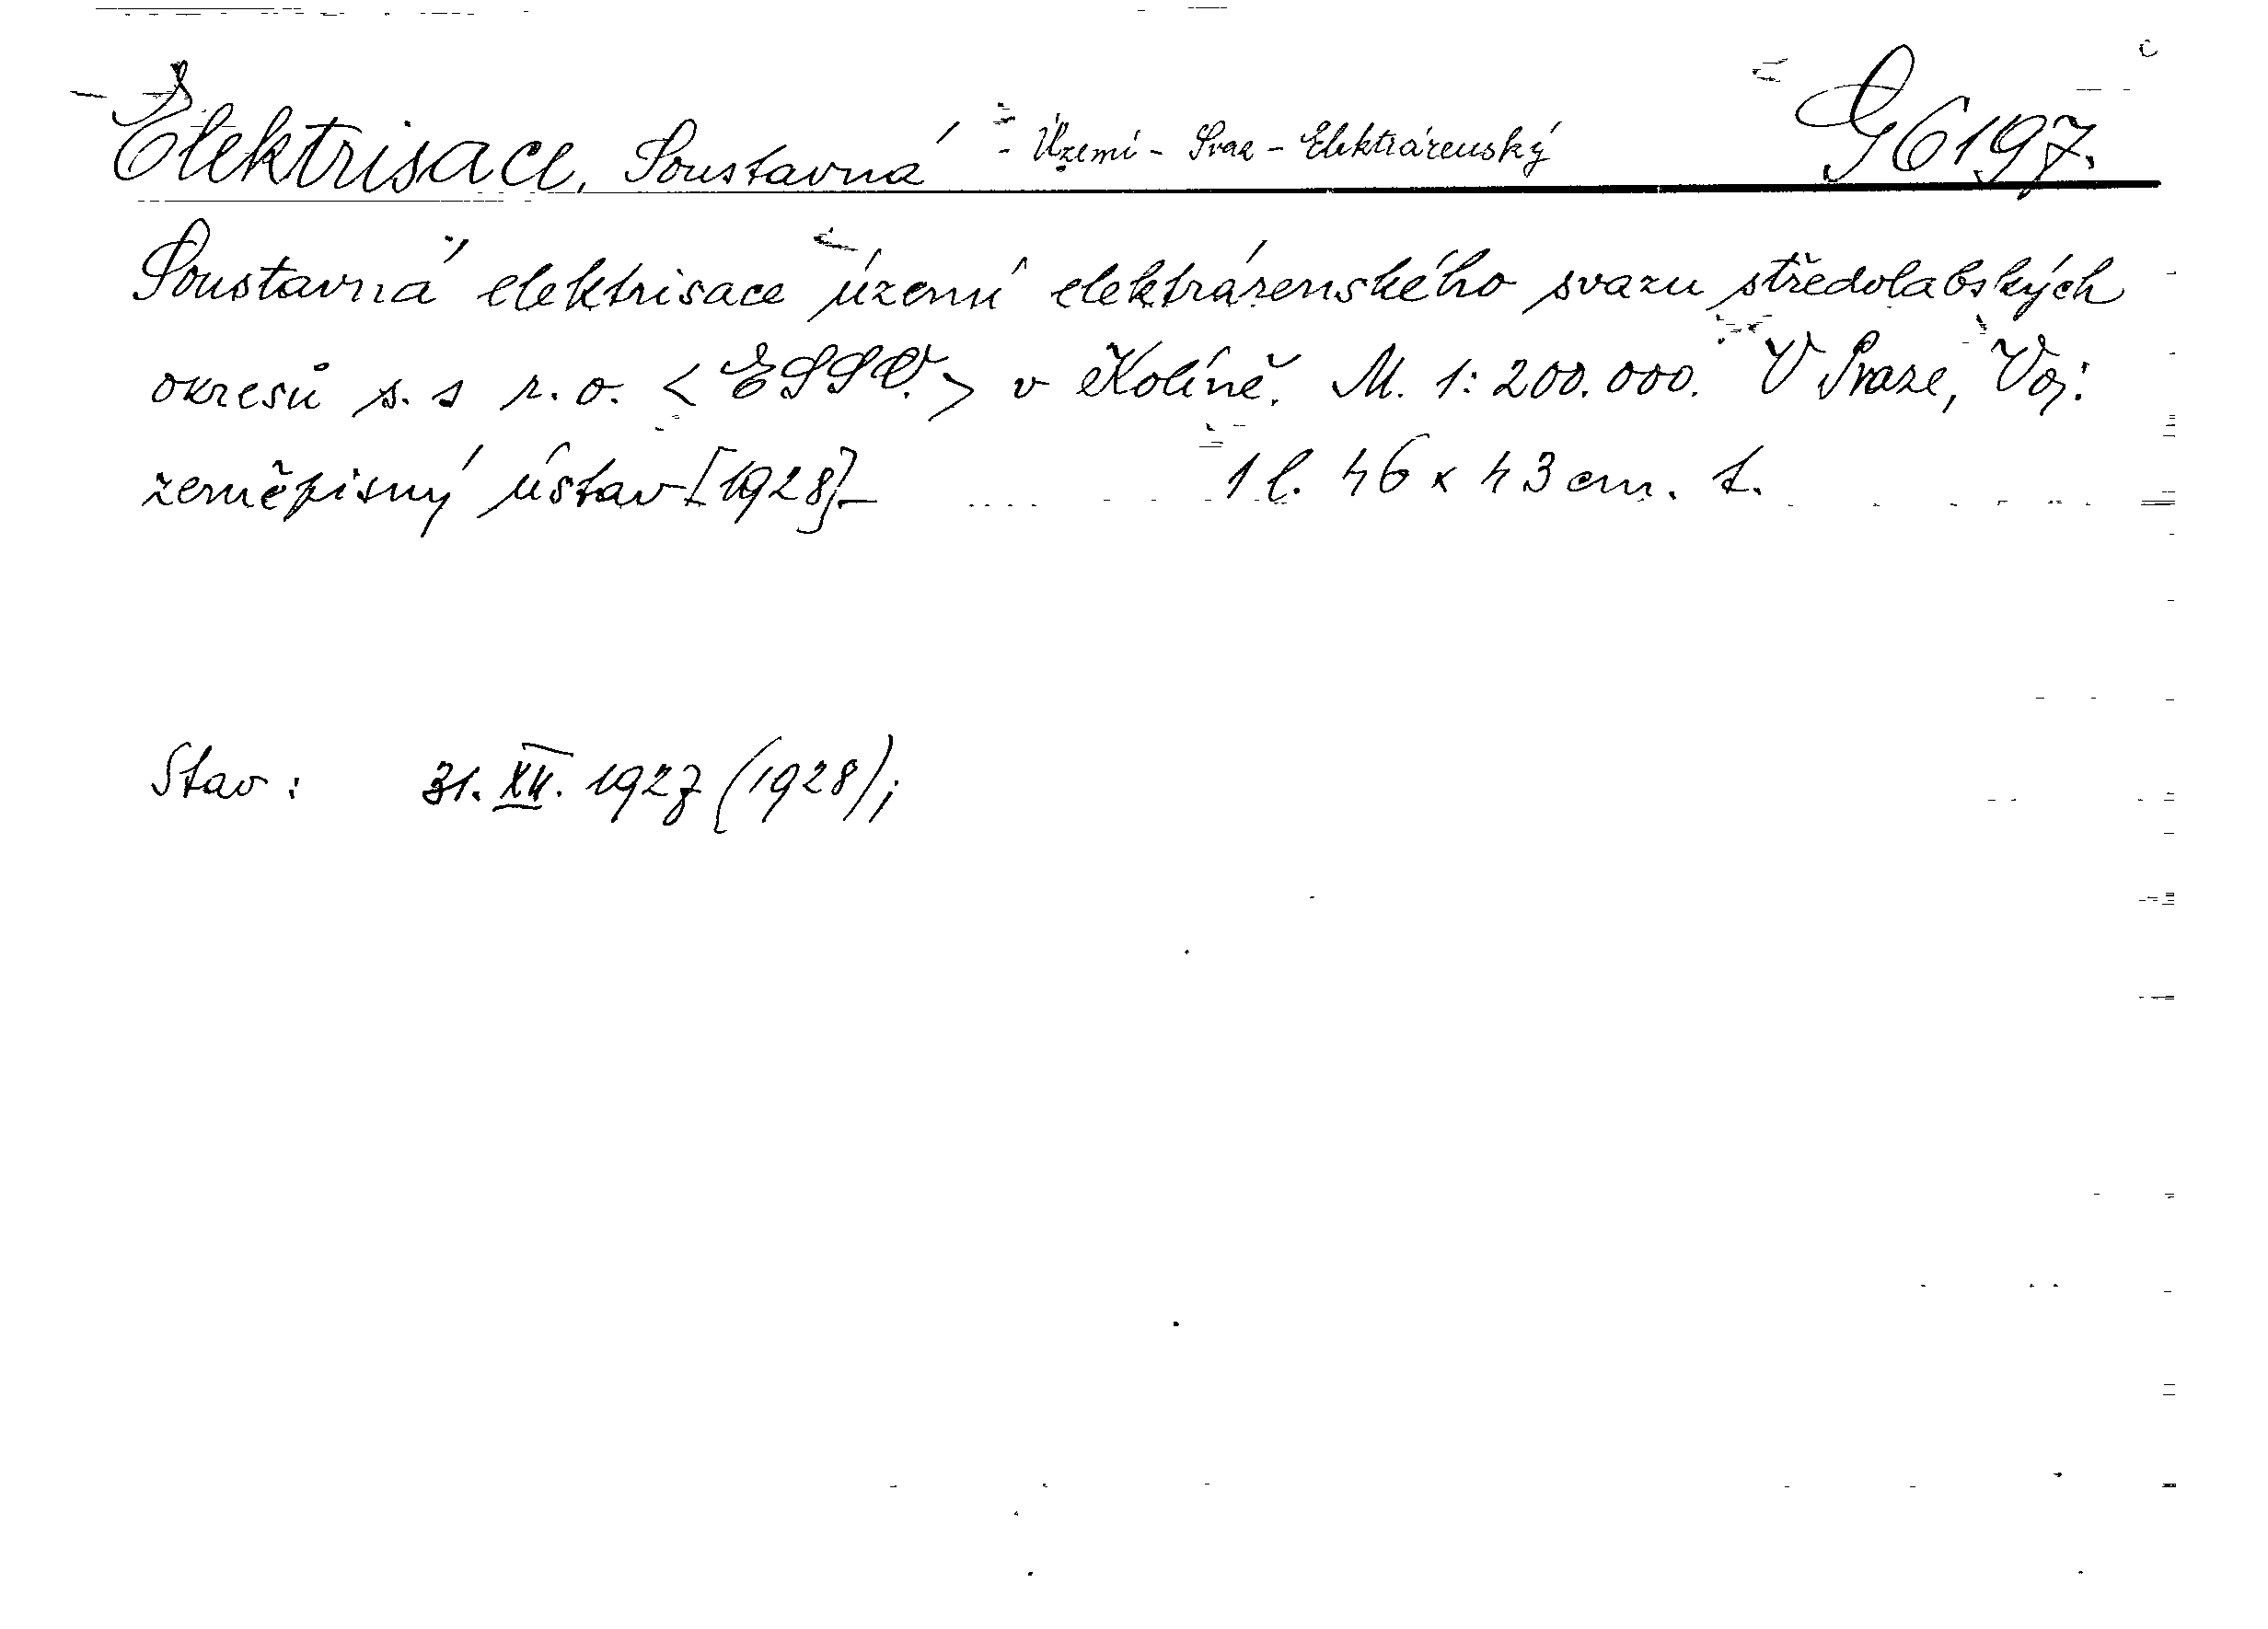 Elektrisace, Soustavná - Území - Svaz - Elektrárenský G 6197.
Soustavná elektrisace území elektrárenského svazu středolabských
okresů s. s r. o. < ESSO. > v Kolíně. M. 1: 200.000. V Praze, Voj.
zeměpisný ústav [1928]. 1 l. 46 x 43 cm. t.
Stav: 31. XII. 1927 (1928);